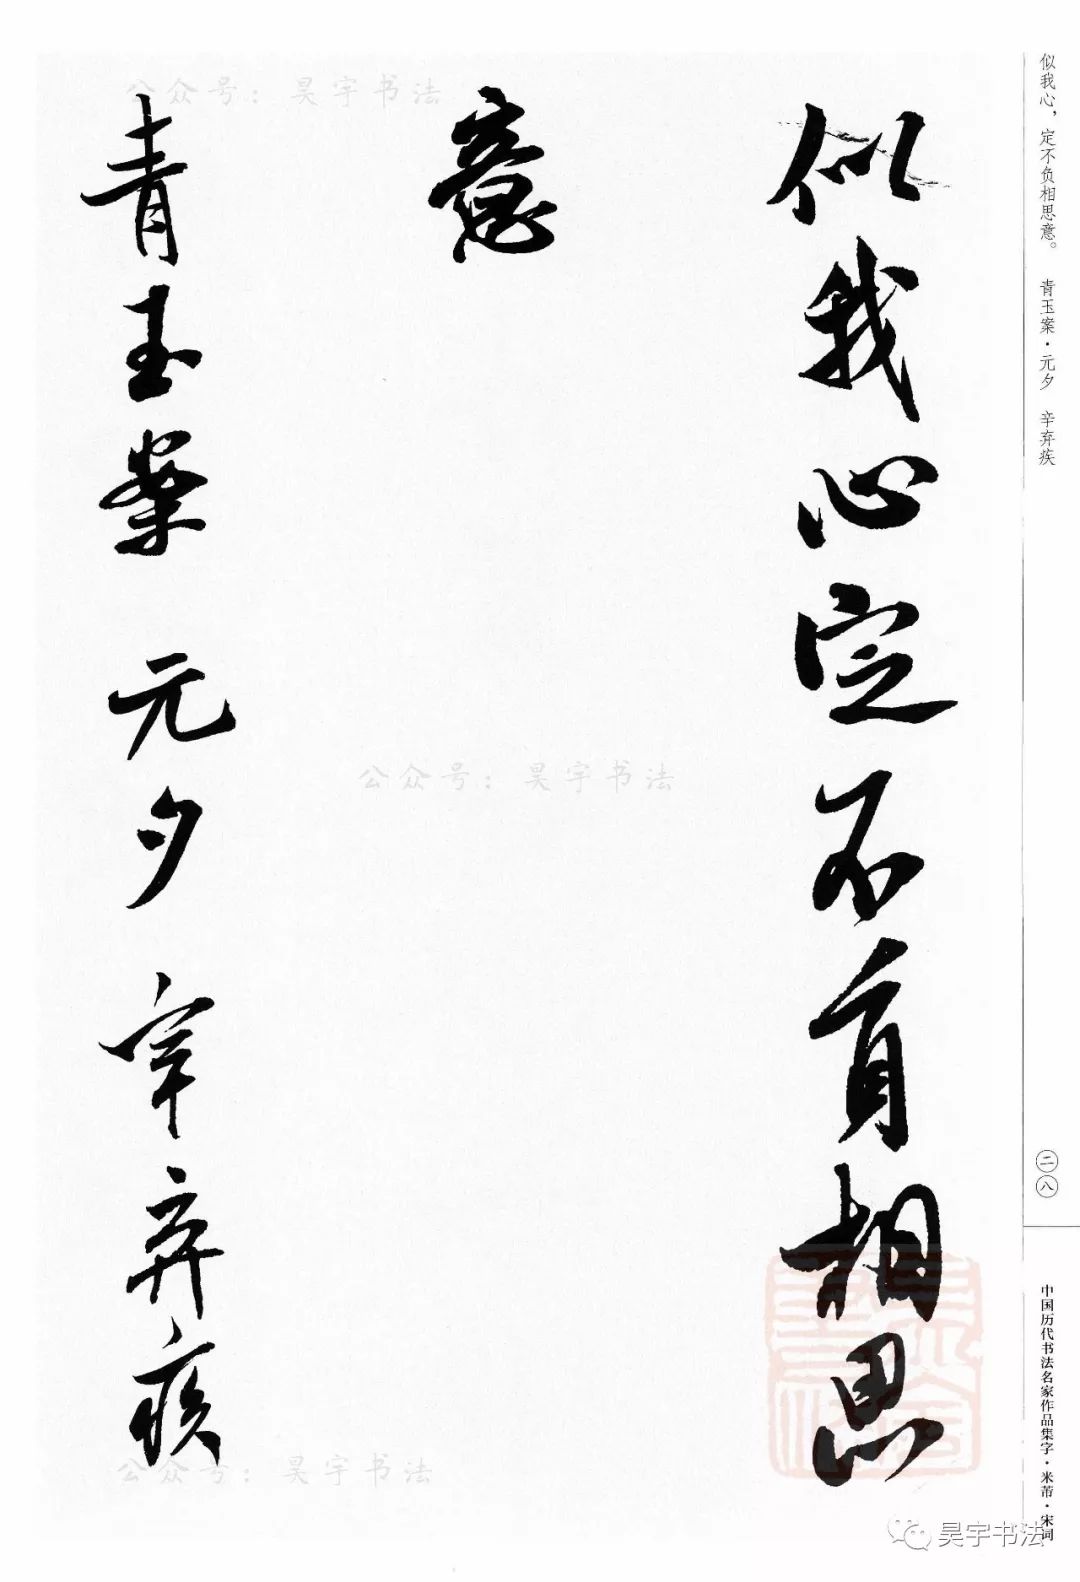 似我心，定不负相思意。 青玉案·元夕 辛弃疾
二八
中国历代书法名家作品集字·米芾·宋词
似我心定不负相思
意
青玉案 元夕 辛弃疾
公众号：昊宇书法
公众号：昊宇书法
公众号：昊宇书法
昊宇书法